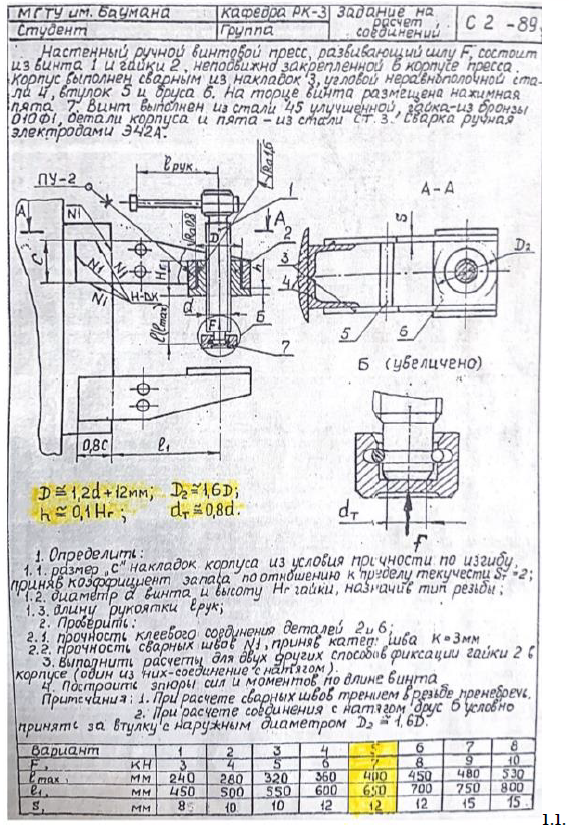 МГТУ им. Баумана
Кафедра РК-3
Задание на расчет соединений
С 2 -89
Студент
Группа
Настенный ручной винтовой пресс, развивающий силу F, состоит
из винта 1 и гайки 2, неподвижно закрепленной в корпусе пресса.
Корпус выполнен сварным из накладок 3, угловой неравнополочной ста-
ли 4, втулок 5 и бруса 6. На торце винта размещена нажимная
пята 7. Винт выполнен из стали 45 улучшенной, гайка-из бронзы
О10Ф1, детали корпуса и пята-из стали Ст. 3. Сварка ручная
электродами Э42А.
ПУ-2
ℓрук.
√Ra1,6
1
А-А
А
N1
√Ra0,8
D
А
2
S
D2
C
N1
N1
N1
Hг
h
3
4
Н-ДХ
d
ℓ(ℓmax)
F
Б
7
5
6
Б (увеличено)
0,8С
ℓ1
dт
F
D≅1,2d+12мм; D2≅1,6D;
h≅0,1Hг; dт≅0,8d.
1. Определить:
1.1. размер „С" накладок корпуса из условия прочности по изгибу,
приняв коэффициент запаса по отношению к пределу текучести Sт=2;
1.2. диаметр d винта и высоту Hг гайки, назначив тип резьбы;
1.3. длину рукоятки ℓрук;
2. Проверить:
2.1. прочность клеевого соединения деталей 2 и 6;
2.2. прочность сварных швов N1, приняв катет шва К=3мм
3. Выполнить расчеты для двух других способов фиксации гайки 2 в
корпусе (один из них-соединение с натягом).
4. Построить эпюры сил и моментов по длине винта
Примечания: 1. При расчете сварных швов трением в резьбе пренебречь.
2. При расчете соединения с натягом брус 6 условно
принять за втулку с наружным диаметром D2≅1,6D.
Вариант 1 2 3 4 5 6 7 8
F, кН 3 4 5 6 7 8 9 10
ℓmax, мм 240 280 320 360 400 450 480 530
ℓ1, мм 450 500 550 600 650 700 750 800
S, мм 8 10 10 12 12 12 15 15
1.1.